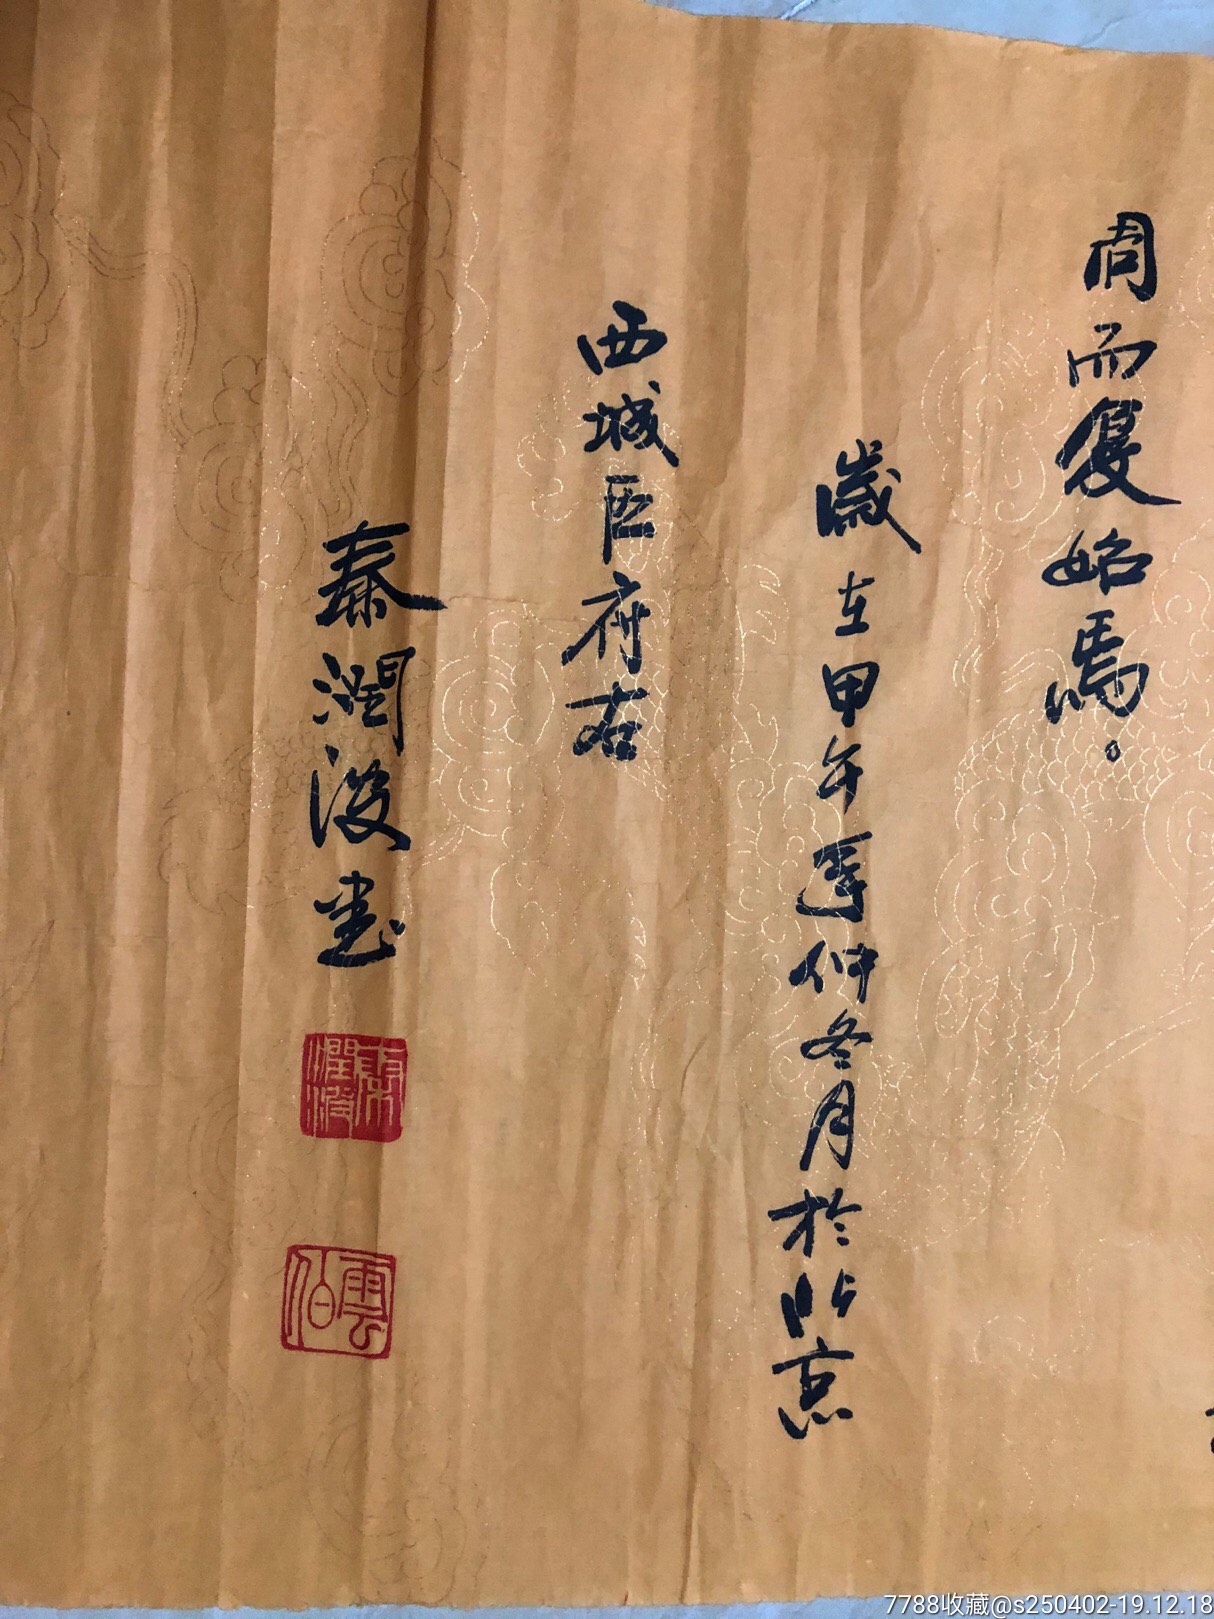 周而复始焉。
歲在甲午年仲冬月於北京
西城區府右
秦潤波書
秦潤波
雲伯
7788收藏@s250402-19.12.18